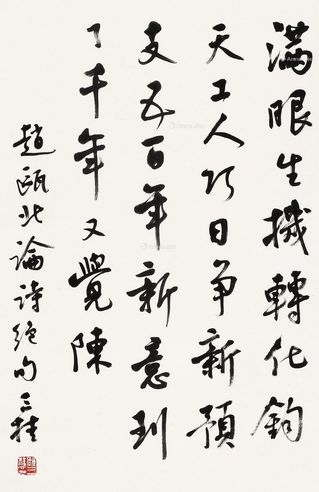 滿眼生機轉化鈞
天工人巧日争新預
支五百年新意到
了千年又覺陳
趙甌北論詩絕句